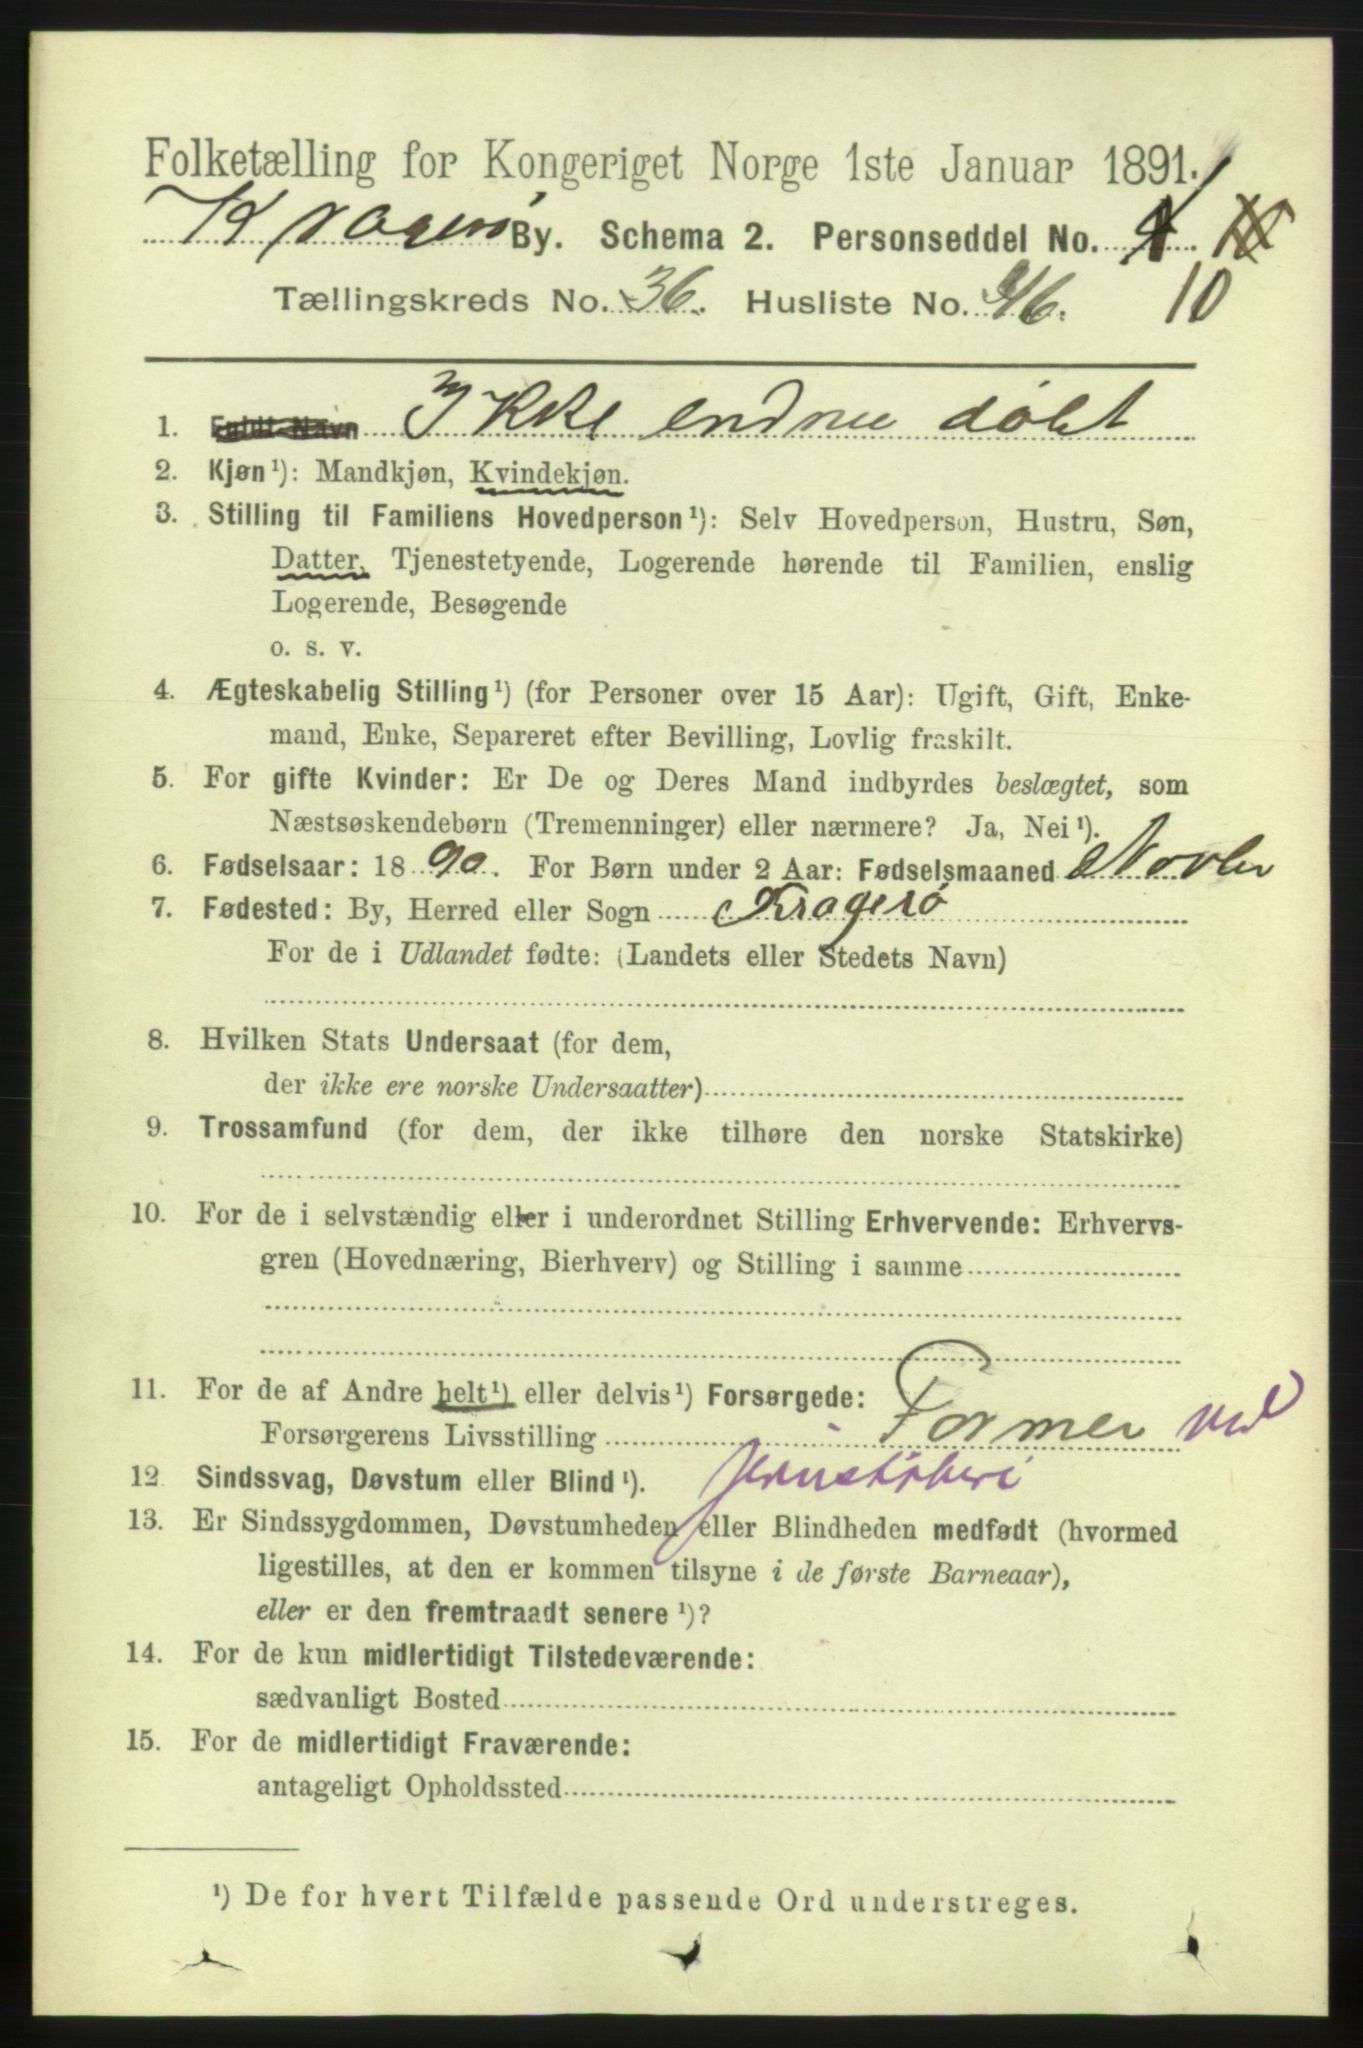 Folketælling for Kongeriget Norge 1ste Januar 1891.
Kragerø By. Schema 2. Personseddel No.
Tællingskreds No. 36. Husliste No. 46. 10
1. Fuldt Navn Ikke endnu døbt
2. Kjøn¹): Mandkjøn, Kvindekjøn.
3. Stilling til Familiens Hovedperson¹): Selv Hovedperson, Hustru, Søn,
Datter, Tjenestetyende, Logerende hørende til Familien, enslig
Logerende, Besøgende
o. s. v.
4. Ægteskabelig Stilling¹) (for Personer over 15 Aar): Ugift, Gift, Enke-
mand, Enke, Separeret efter Bevilling, Lovlig fraskilt.
5. For gifte Kvinder: Er De og Deres Mand indbyrdes beslægtet, som
Næstsøskendebørn (Tremenninger) eller nærmere? Ja, Nei¹).
6. Fødselsaar: 1890. For Børn under 2 Aar: Fødselsmaaned Novbr
7. Fødested: By, Herred eller Sogn Kragerø
For de i Udlandet fødte: (Landets eller Stedets Navn)
8. Hvilken Stats Undersaat (for dem,
der ikke ere norske Undersaatter)
9. Trossamfund (for dem, der ikke tilhøre den norske Statskirke)
10. For de i selvstændig eller i underordnet Stilling Erhvervende: Erhvervs-
gren (Hovednæring, Bierhverv) og Stilling i samme
11. For de af Andre helt¹) eller delvis¹) Forsørgede:
Forsørgerens Livsstilling Former ved
12. Sindssvag, Døvstum eller Blind¹). Jernstøberi
13. Er Sindssygdommen, Døvstumheden eller Blindheden medfødt (hvormed
ligestilles, at den er kommen tilsyne i de første Barneaar),
eller er den fremtraadt senere¹)?
14. For de kun midlertidigt Tilstedeværende:
sædvanligt Bosted
15. For de midlertidigt Fraværende:
antageligt Opholdssted
¹) De for hvert Tilfælde passende Ord understreges.